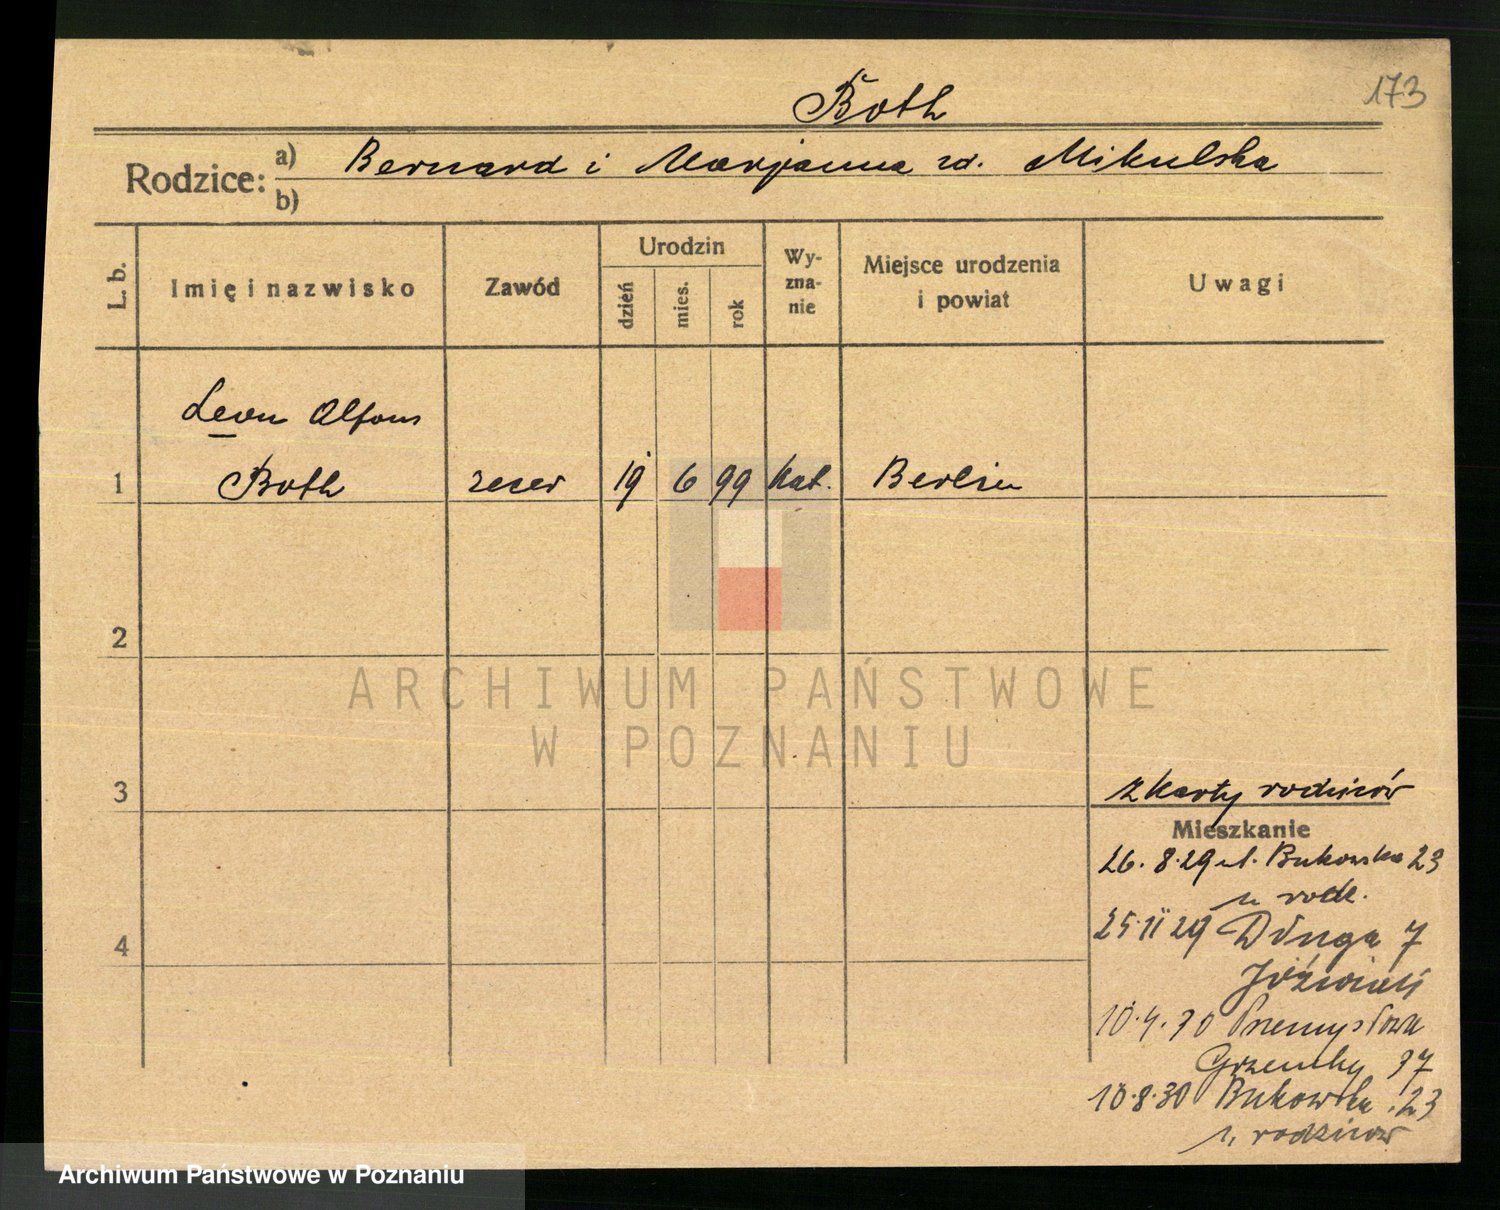 173
Both
Rodzice: a) Bernard i Marjanna zd. Mikulska
b)
L. b. Imię i nazwisko Zawód Urodzin dzień mies. rok Wy-zna-nie Miejsce urodzenia i powiat Uwagi
Leon Alfons
1 Both zecer 19 6 99 kat. Berlin
2
ARCHIWUM PAŃSTWOWE
W POZNANIU
3
z karty rodziców
Mieszkanie
26.8.29 ul. Bukowska 23
u rodz.
4
25.11 29 Długa 7
10.4.30 Przemysłowa
37
10.8.30 Bukowska 23
u rodziców
Archiwum Państwowe w Poznaniu